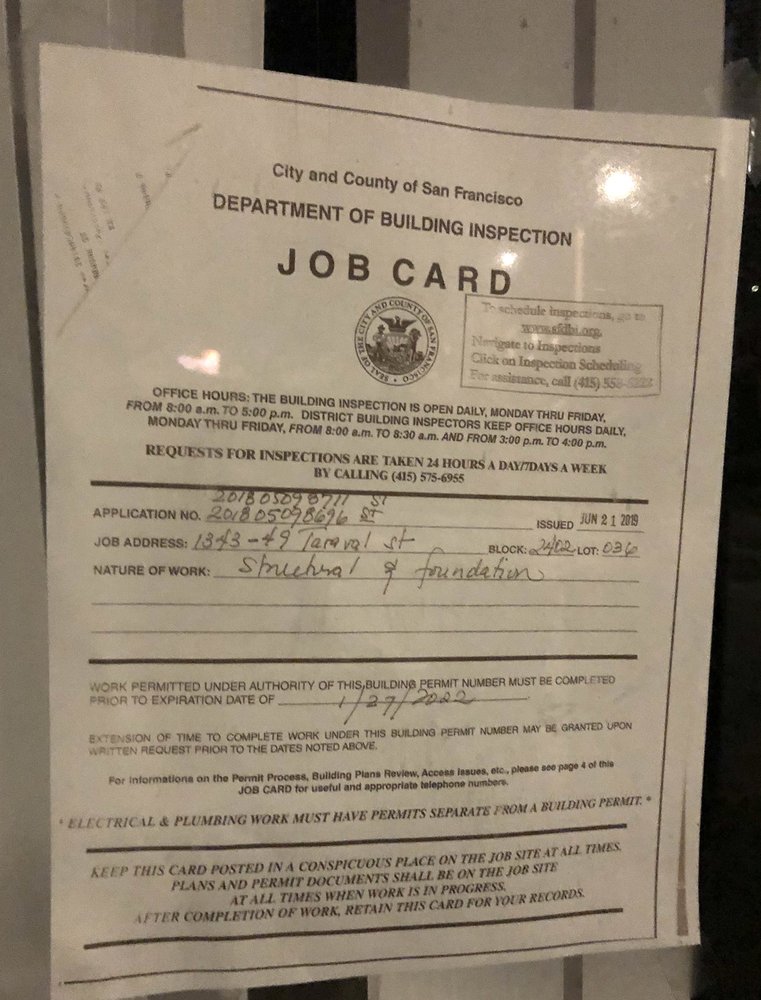 City and County of San Francisco
DEPARTMENT OF BUILDING INSPECTION
JOB CARD
SEAL OF THE CITY AND COUNTY OF SAN FRANCISCO
To schedule inspections, go to
www.sfdbi.org
Navigate to Inspections
Click on Inspection Scheduling
For assistance, call (415)
OFFICE HOURS: THE BUILDING INSPECTION IS OPEN DAILY, MONDAY THRU FRIDAY,
FROM 8:00 a.m. TO 5:00 p.m. DISTRICT BUILDING INSPECTORS KEEP OFFICE HOURS DAILY,
MONDAY THRU FRIDAY, FROM 8:00 a.m. TO 8:30 a.m. AND FROM 3:00 p.m. TO 4:00 p.m.
REQUESTS FOR INSPECTIONS ARE TAKEN 24 HOURS A DAY/7DAYS A WEEK
BY CALLING (415) 575-6955
201805098711 ST
APPLICATION NO. 201805098696 ST ISSUED JUN 21 2019
JOB ADDRESS: 1343-49 Taraval st BLOCK: 2402 LOT: 036
NATURE OF WORK: Structural & foundation
WORK PERMITTED UNDER AUTHORITY OF THIS BUILDING PERMIT NUMBER MUST BE COMPLETED
PRIOR TO EXPIRATION DATE OF 1/27/2022
EXTENSION OF TIME TO COMPLETE WORK UNDER THIS BUILDING PERMIT NUMBER MAY BE GRANTED UPON
WRITTEN REQUEST PRIOR TO THE DATES NOTED ABOVE.
For Informations on the Permit Process, Building Plans Review, Access Issues, etc., please see page 4 of this
JOB CARD for useful and appropriate telephone numbers.
* ELECTRICAL & PLUMBING WORK MUST HAVE PERMITS SEPARATE FROM A BUILDING PERMIT. *
KEEP THIS CARD POSTED IN A CONSPICUOUS PLACE ON THE JOB SITE AT ALL TIMES.
PLANS AND PERMIT DOCUMENTS SHALL BE ON THE JOB SITE
AT ALL TIMES WHEN WORK IS IN PROGRESS.
AFTER COMPLETION OF WORK, RETAIN THIS CARD FOR YOUR RECORDS.